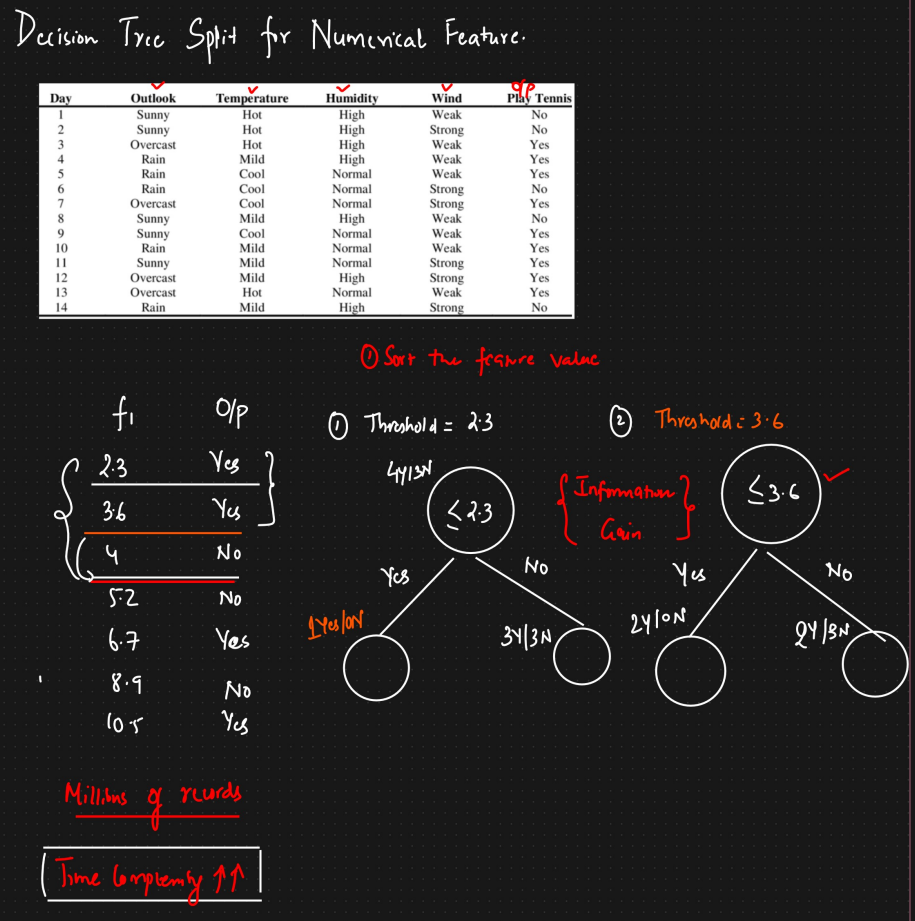 Decision Tree Split for Numerical Feature.
O/p
Day Outlook Temperature Humidity Wind Play Tennis
1 Sunny Hot High Weak No
2 Sunny Hot High Strong No
3 Overcast Hot High Weak Yes
4 Rain Mild High Weak Yes
5 Rain Cool Normal Weak Yes
6 Rain Cool Normal Strong No
7 Overcast Cool Normal Strong Yes
8 Sunny Mild High Weak No
9 Sunny Cool Normal Weak Yes
10 Rain Mild Normal Weak Yes
11 Sunny Mild Normal Strong Yes
12 Overcast Mild High Strong Yes
13 Overcast Hot Normal Weak Yes
14 Rain Mild High Strong No
① Sort the feature value
f1 O/p
2.3 Yes
3.6 Yes
4 No
5.2 No
6.7 Yes
8.9 No
10.5 Yes
① Threshold = 2.3
4Y|3N
≤2.3
Yes No
1Yes|0N 3Y|3N
{Information
Gain}
② Threshold: 3.6
≤3.6
Yes No
2Y|0N 2Y|3N
Millions of records
Time Complexity ↑↑